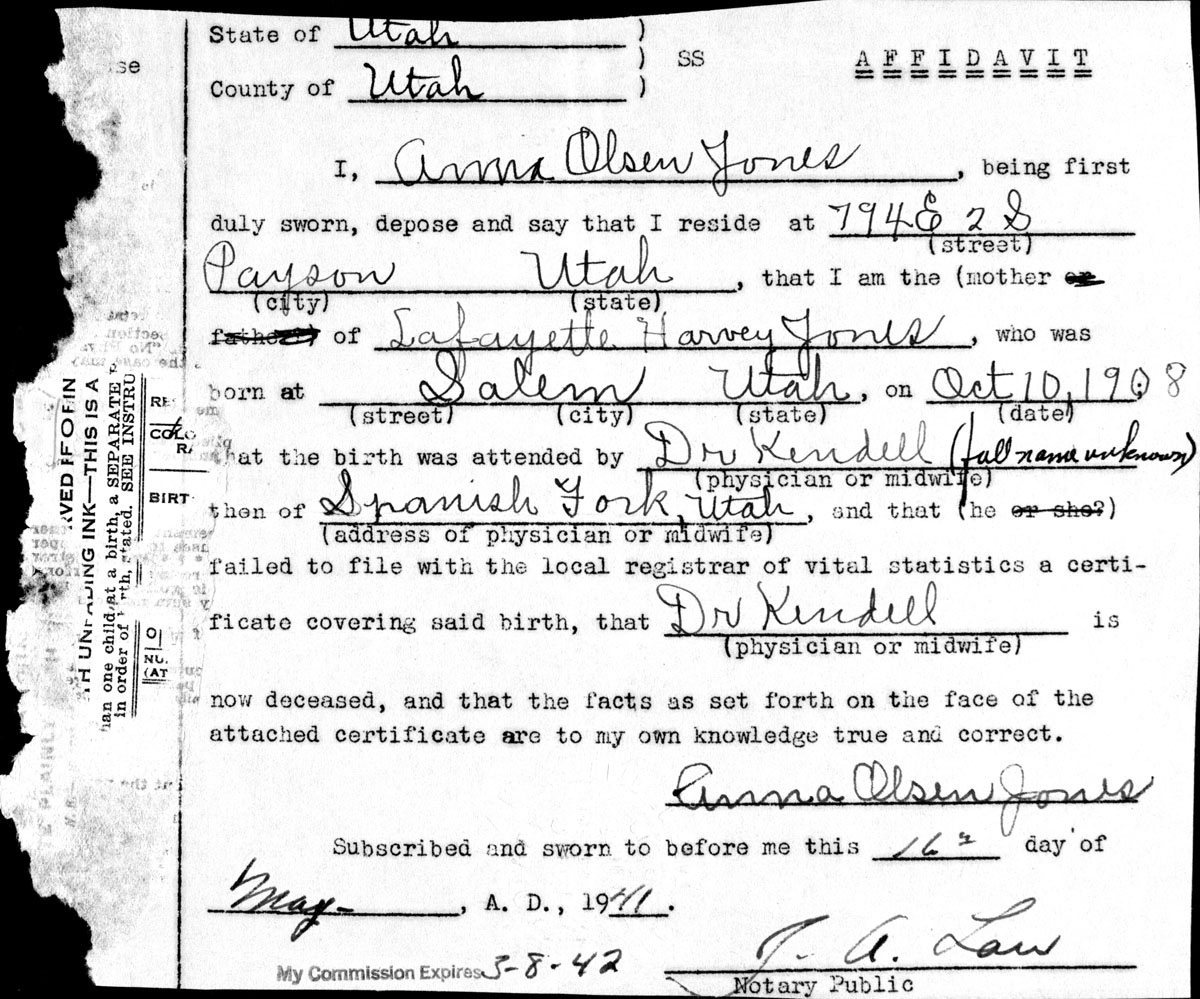 State of Utah )
) SS AFFIDAVIT
County of Utah )
I, Anna Olsen Jones, being first
duly sworn, depose and say that I reside at 794 E 2 S
(street)
Payson Utah, that I am the (mother or
(city) (state)
father?) of Lafayette Harvey Jones, who was
born at Salem Utah, on Oct 10, 1908
(street) (city) (state) (date)
that the birth was attended by Dr Kendell (full name unknown)
(physician or midwife)
then of Spanish Fork, Utah, and that (he or she?)
(address of physician or midwife)
failed to file with the local registrar of vital statistics a certi-
ficate covering said birth, that Dr Kendell is
(physician or midwife)
now deceased, and that the facts as set forth on the face of the
attached certificate are to my own knowledge true and correct.
Anna Olsen Jones
Subscribed and sworn to before me this 16 day of
May, A. D., 1941.
My Commission Expires 3-8-42
J. A. Law
Notary Public
RVED FOR BIN
TH UNFADING INK—THIS IS A
han one child at a birth, a SEPARATE
in order of birth, stated. SEE INSTRU
COLO
RA
BIRT
NU
(AT